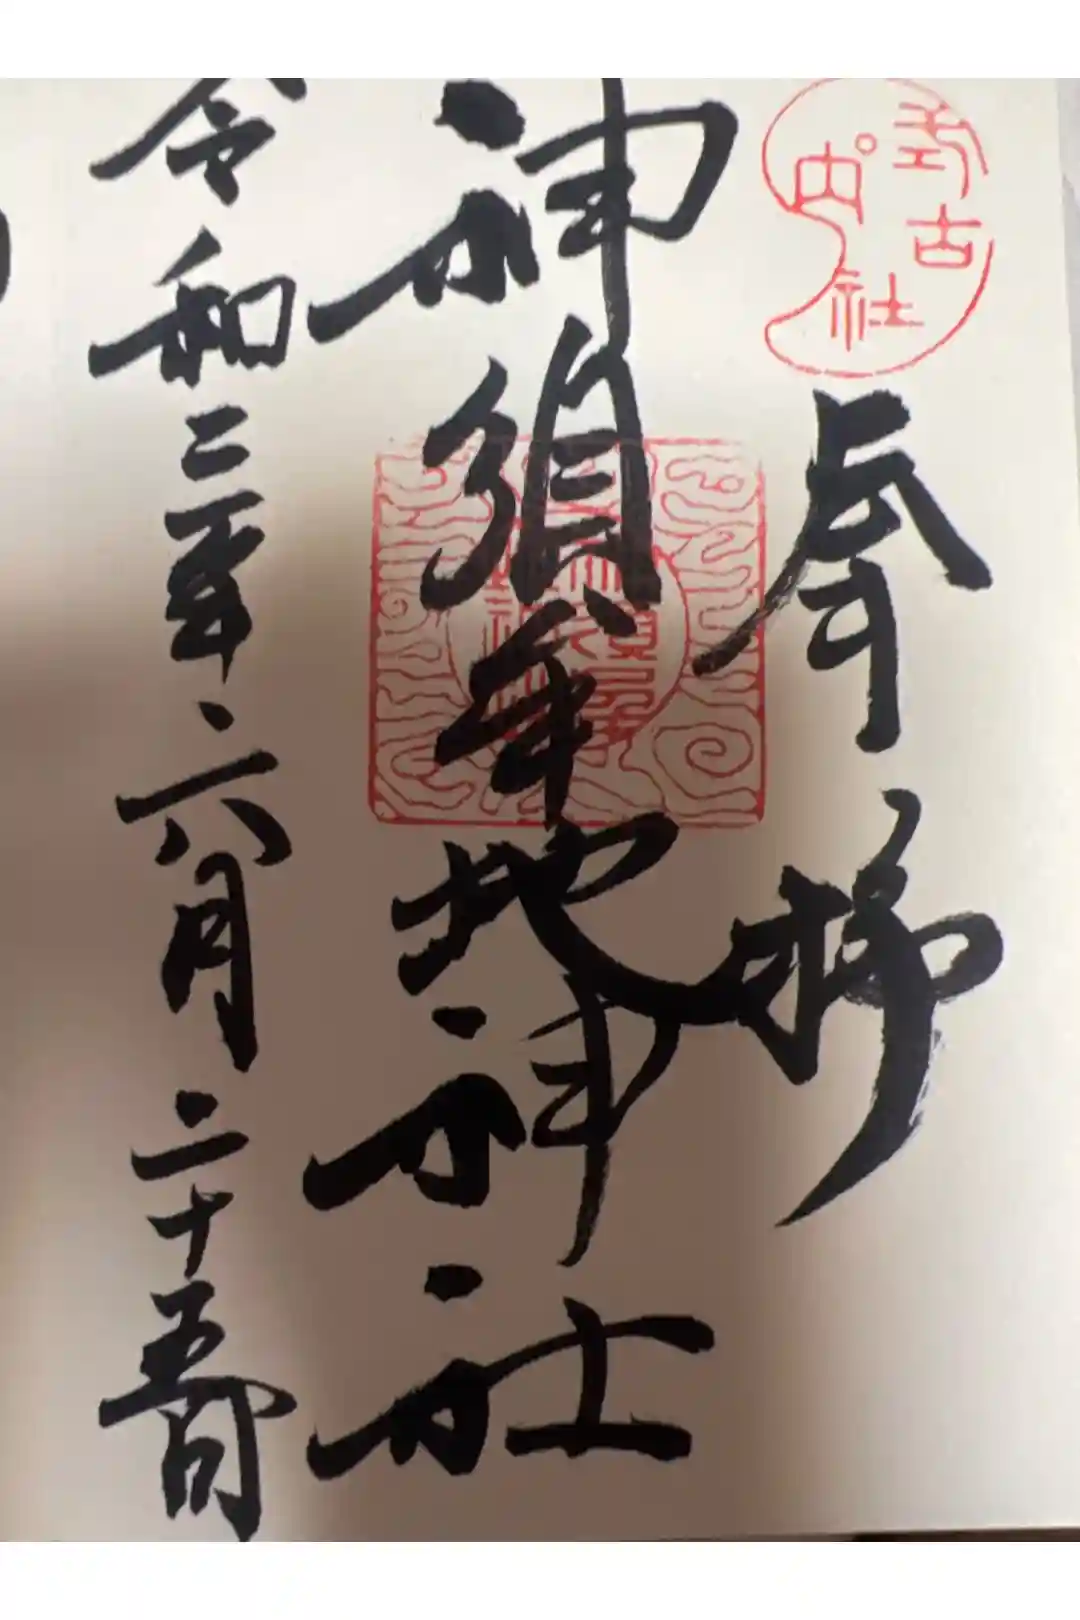 式内古社
奉拝
神須牟地神社
令和三年六月二十五日